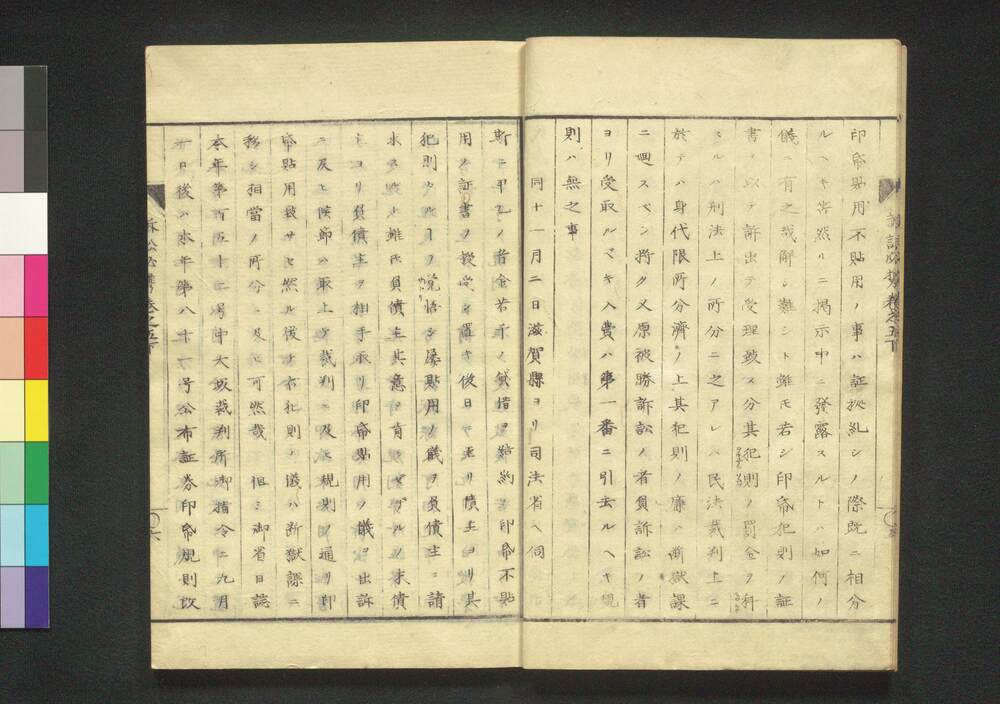 印帋貼用不貼用ノ事ハ証拠糺シノ際既ニ相分
ルヘキ筈然ルニ掲示中ニ發露スルトハ如何ノ
儀ニ有之哉解シ難シト雖モ若シ印帋犯則ノ証
書ヲ以テ訴出テ受理致ス分其犯則ノ罰金ヲ科
スルハ刑法上ノ所分ニ之アレハ民法裁判上ニ
於テハ身代限所分済ノ上其犯則ノ廉ハ断獄課
ニ廻スベシ将タ又原被勝訴訟ノ者負訴訟ノ者
ヨリ受取ルベキ入費ハ第一番ニ引去ルヘキ規
則ハ無之事
同十一月二日滋賀縣ヨリ司法省ヘ伺
斯ニ甲乙ノ者金若干ノ貸借ヲ結約シ印帋不貼
用ノ証書ヲ授受シ置キ後日ヤ至リ債主ヨリ其
犯則タルヲ覚悟シ屡貼用ノ儀ヲ負債主ニ請
求スト雖氏負債主其意ヲ肯ンゼザルヨリ債
主ヨリ負債主ヲ相手取リ印帋貼用ノ儀ヲ出訴
ニ及ヒ候節ハ取上ケ裁判ニ及ヒ規則ノ通リ印
帋貼用致サセ然ル後チ右犯則ノ儀ハ断獄課ニ
移シ相當ノ所分ニ及ヒ可然哉 但シ御省日誌
本年第百五十二号中大坂裁判所御指令ニ九月
一日後ハ本年第八十一号公布証券印帋規則改
訴訟必携巻之五下